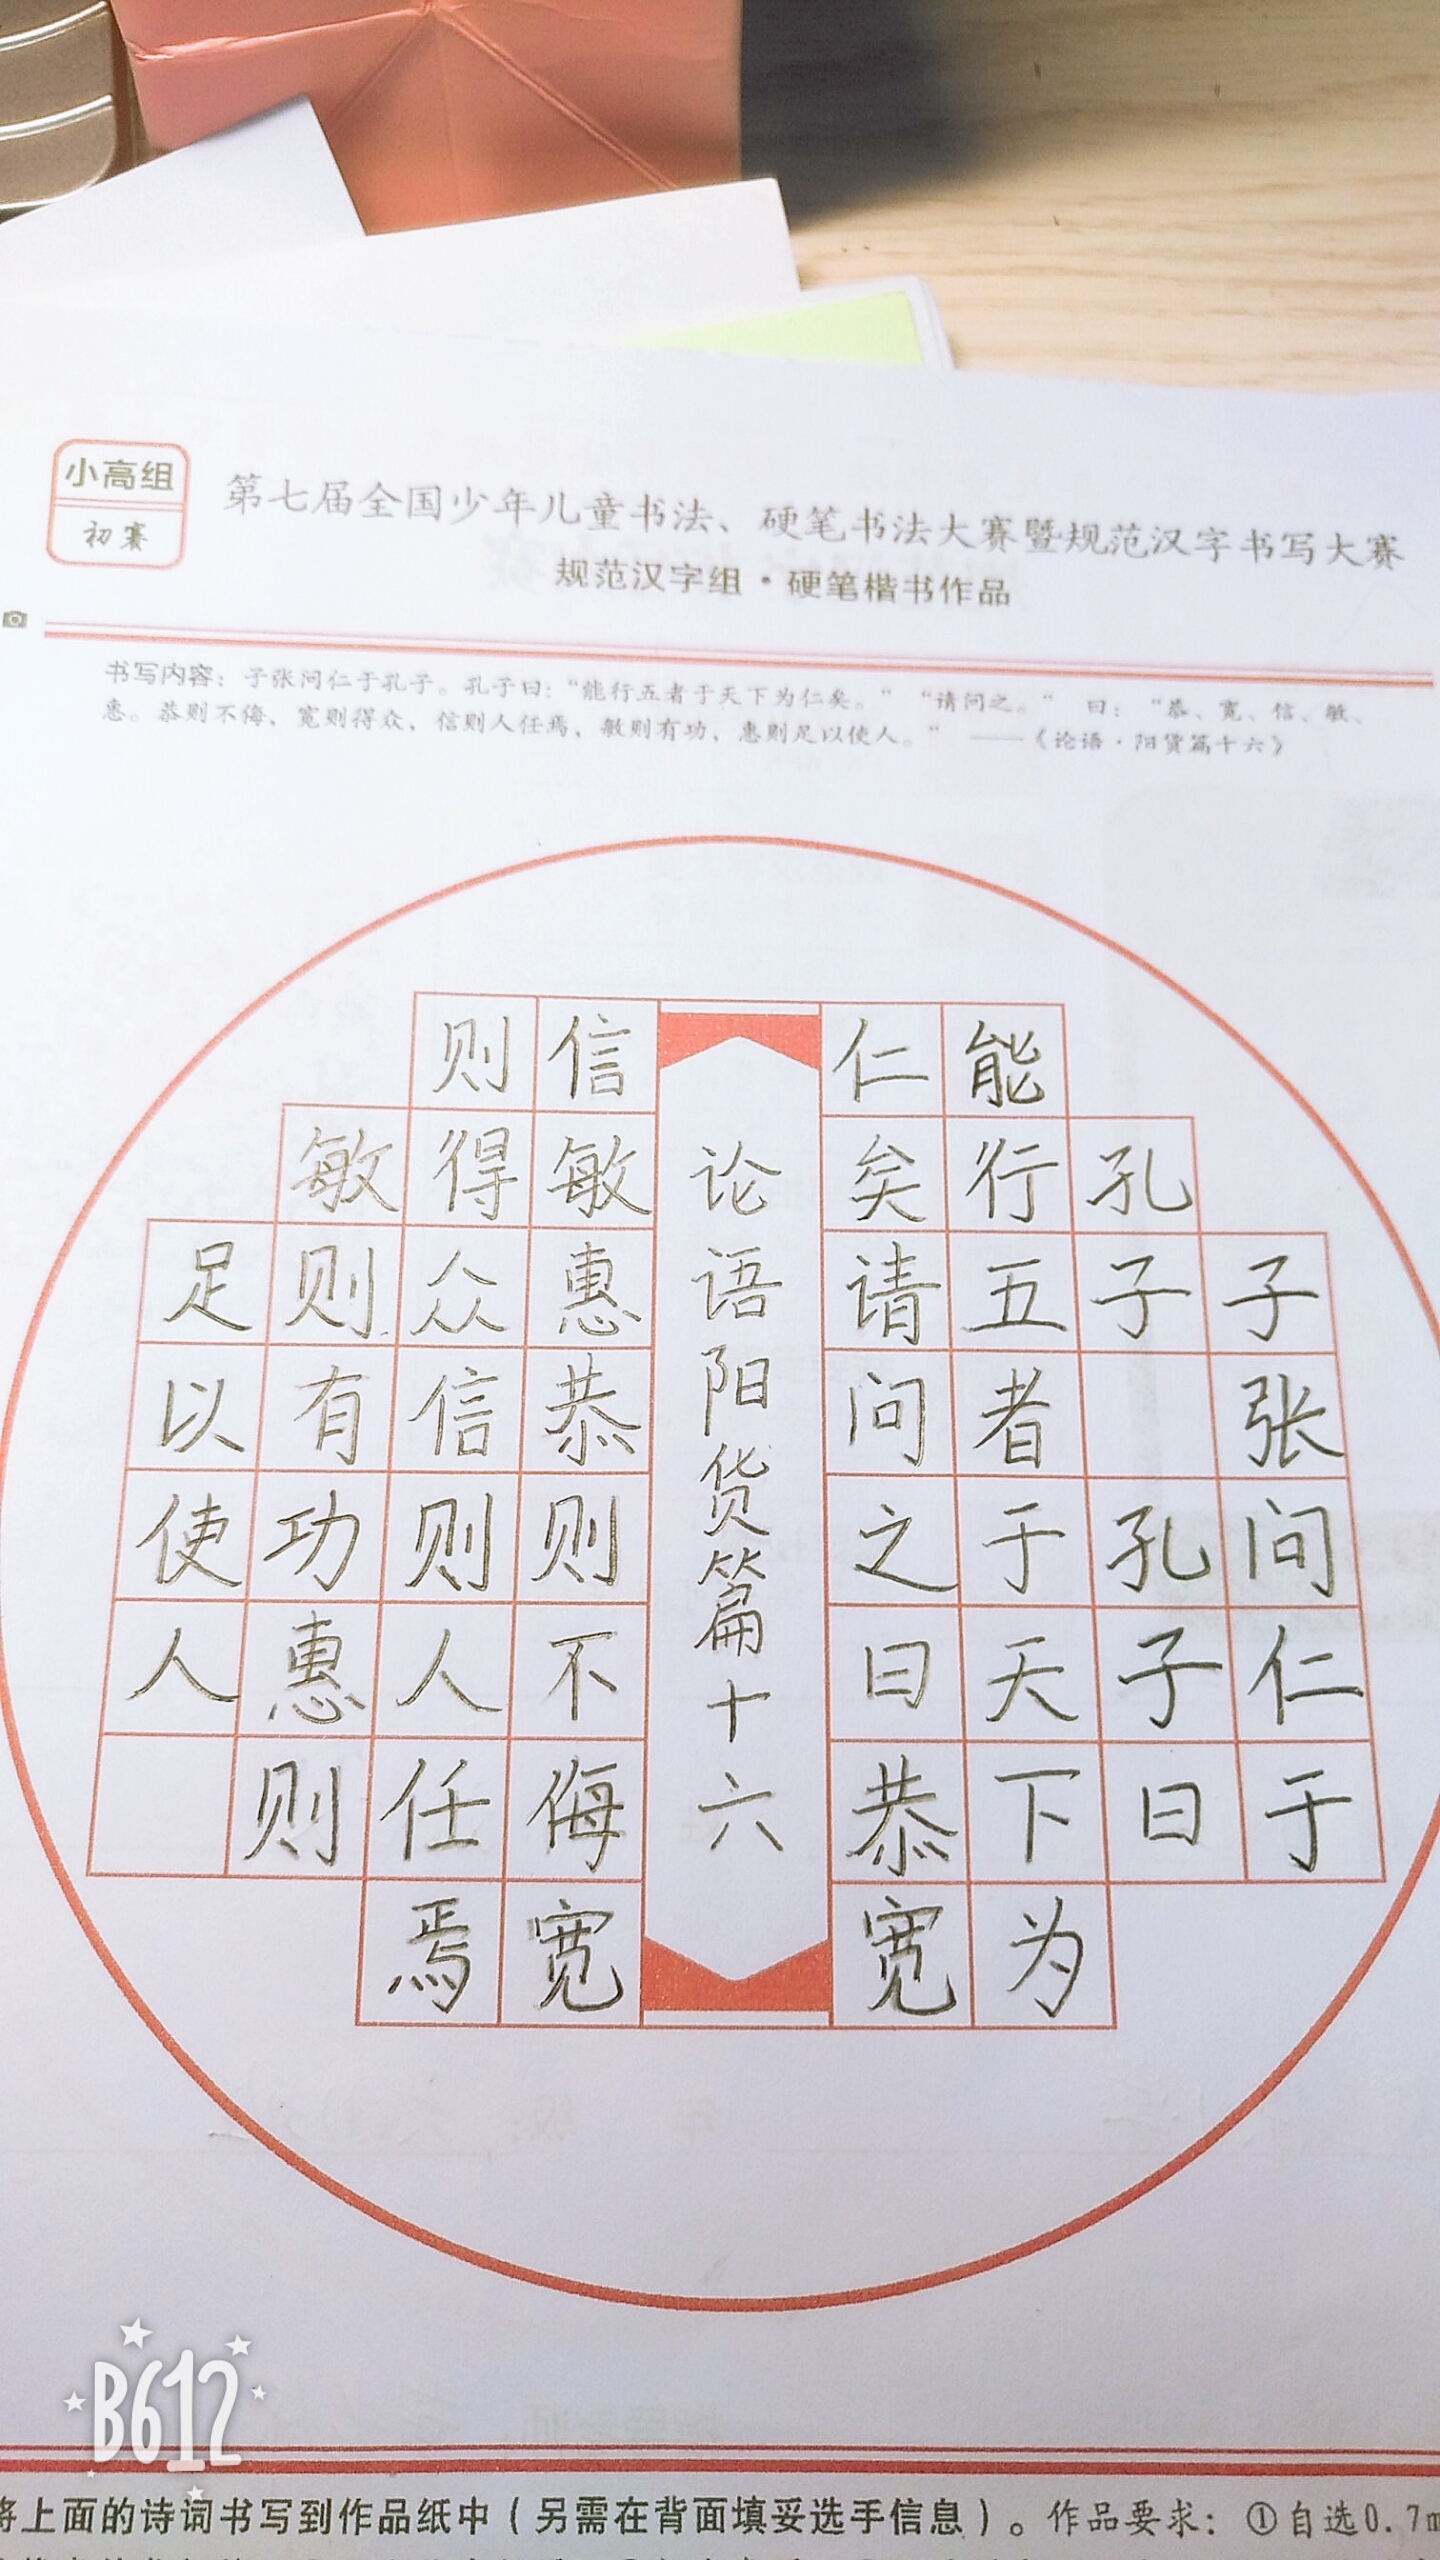 小高组
初赛
第七届全国少年儿童书法、硬笔书法大赛暨规范汉字书写大赛
规范汉字组·硬笔楷书作品
书写内容：子张问仁于孔子。孔子曰：“能行五者于天下为仁矣。” “请问之。” 曰：“恭、宽、信、敏、
惠。恭则不侮，宽则得众，信则人任焉，敏则有功，惠则足以使人。” ——《论语·阳货篇十六》
子张问仁于
孔子 孔子曰
能行五者于天下为
仁矣请问之曰恭宽
论语阳货篇十六
信敏惠恭则不侮宽
则得众信则人任焉
敏则有功惠则
足以使人
B612
将上面的诗词书写到作品纸中（另需在背面填妥选手信息）。作品要求：①自选0.7m